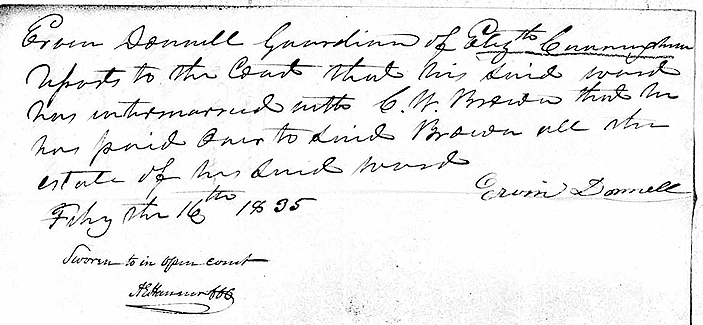 Erwin Donnell Guardian of Elizth Cunningham
reports to the Court that his said ward
has intermarried with C. W. Brown that he
has paid over to said Brown all the
estate of his said ward
Erwin Donnell
Feby the 16th 1835
Sworn to in open court
A E Hanner